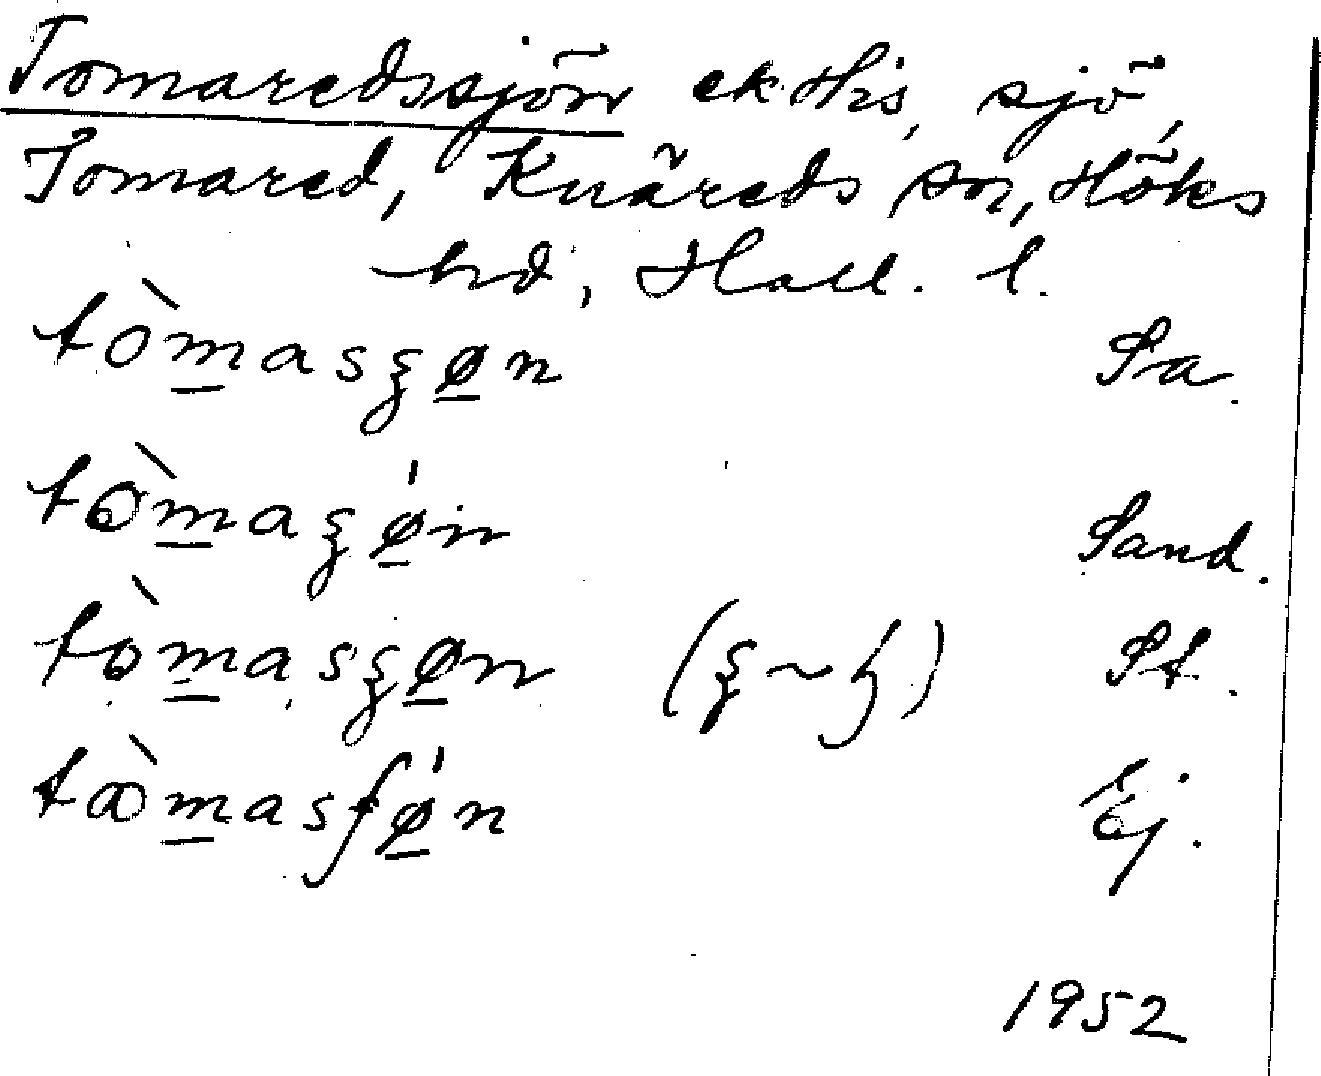 Tomaredssjön ek His, sjö,
Tomared, Knäreds sn, Höks
hd, Hall. l.
tòmasʂøn Sa.
tòmaʂǿn Sand.
tòmasʂøn (ʂ~ɧ) St.
tαòmasʃǿn Ej.
1952